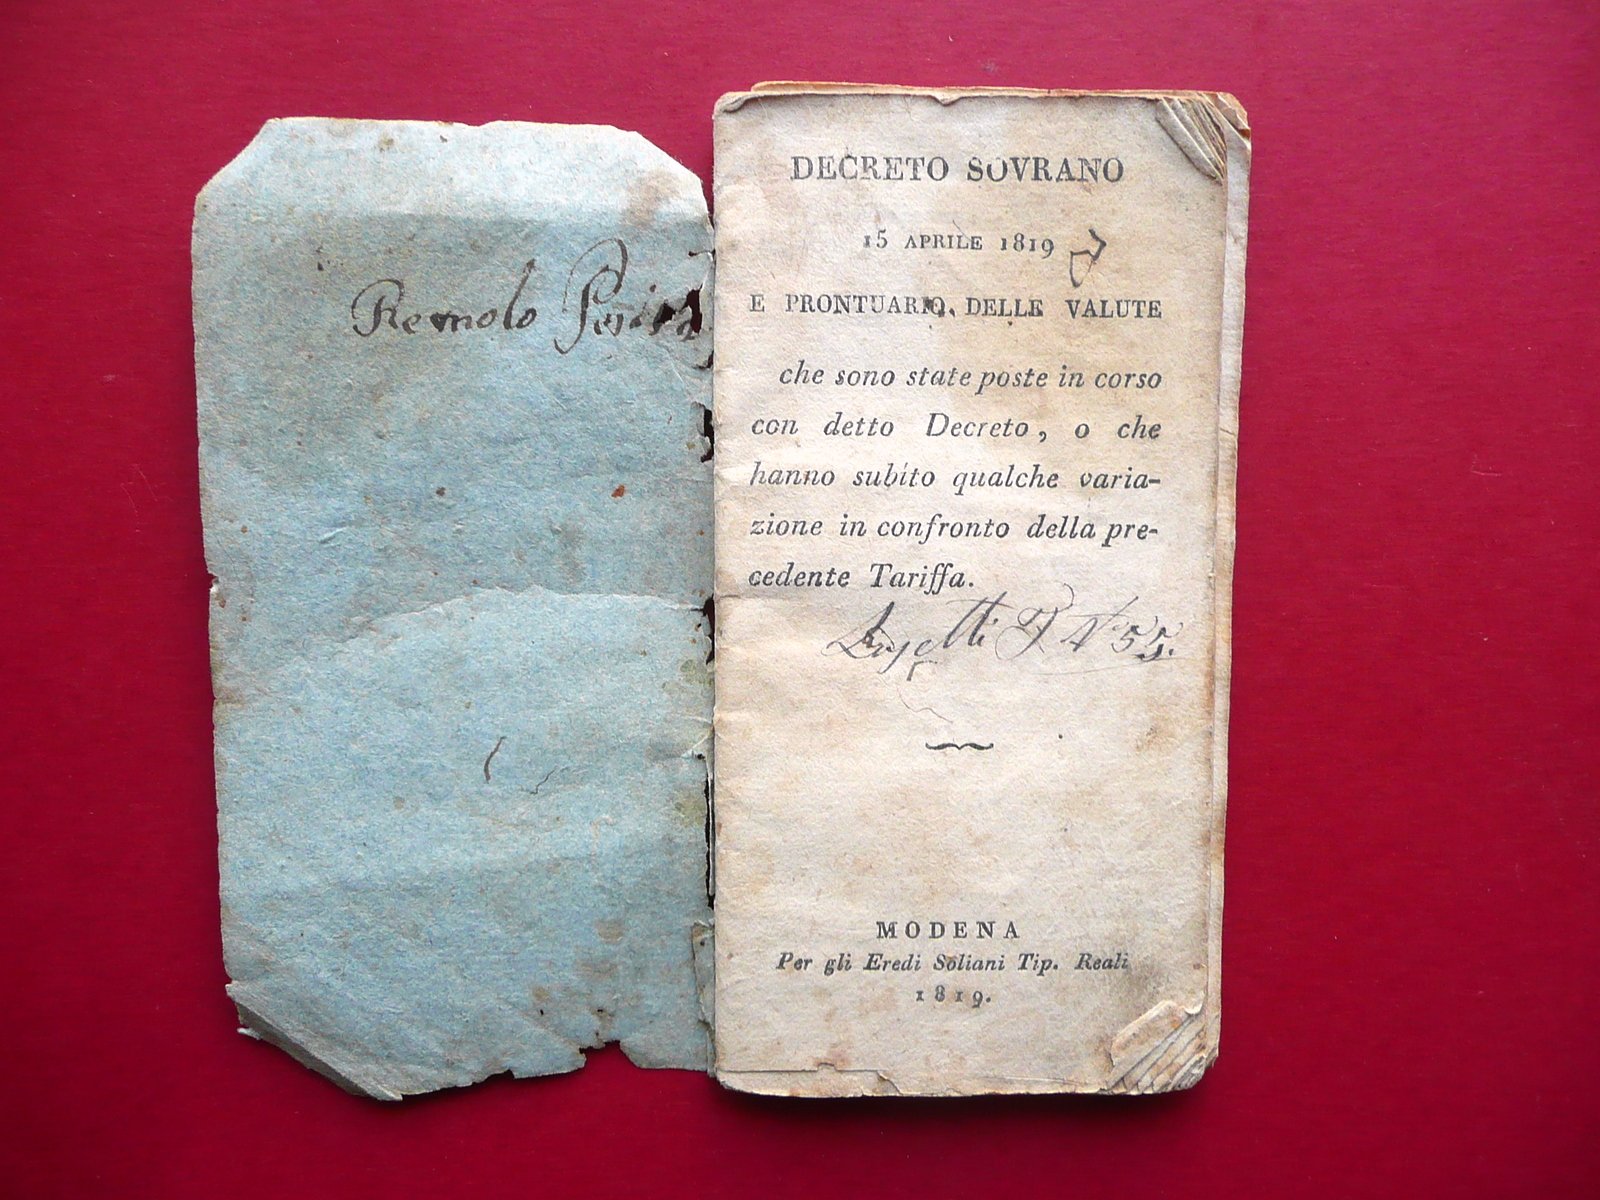 Remolo
DECRETO SOVRANO
15 APRILE 1819
E PRONTUARIO DELLE VALUTE
che sono state poste in corso
con detto Decreto, o che
hanno subíto qualche varia-
zione in confronto della pre-
cedente Tariffa.
55.
MODENA
Per gli Eredi Soliani Tip. Reali
1819.